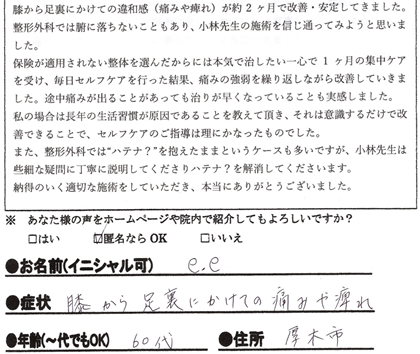 膝から足裏にかけての違和感（痛みや痺れ）が約2ヶ月で改善・安定してきました。
整形外科では腑に落ちないこともあり、小林先生の施術を信じ通ってみようと思いま
した。
保険が適用されない整体を選んだからには本気で治したい一心で1ヶ月の集中ケア
を受け、毎日セルフケアを行った結果、痛みの強弱を繰り返しながら改善していきま
した。途中痛みが出ることがあっても治りが早くなっていることも実感しました。
私の場合は長年の生活習慣が原因であることを教えて頂き、それは意識するだけで改
善できることで、セルフケアのご指導は理にかなったものでした。
また、整形外科では“ハテナ？”を抱えたままというケースも多いですが、小林先生は
些細な疑問に丁寧に説明してくださりハテナ？を解消してくださいます。
納得のいく適切な施術をしていただき、本当にありがとうございました。
※ あなた様の声をホームページや院内で紹介してもよろしいですか？
□はい ☑匿名ならOK □いいえ
●お名前(イニシャル可) e.e
●症状 膝から足裏にかけての痛みや痺れ
●年齢(〜代でもOK) 60代 ●住所 厚木市